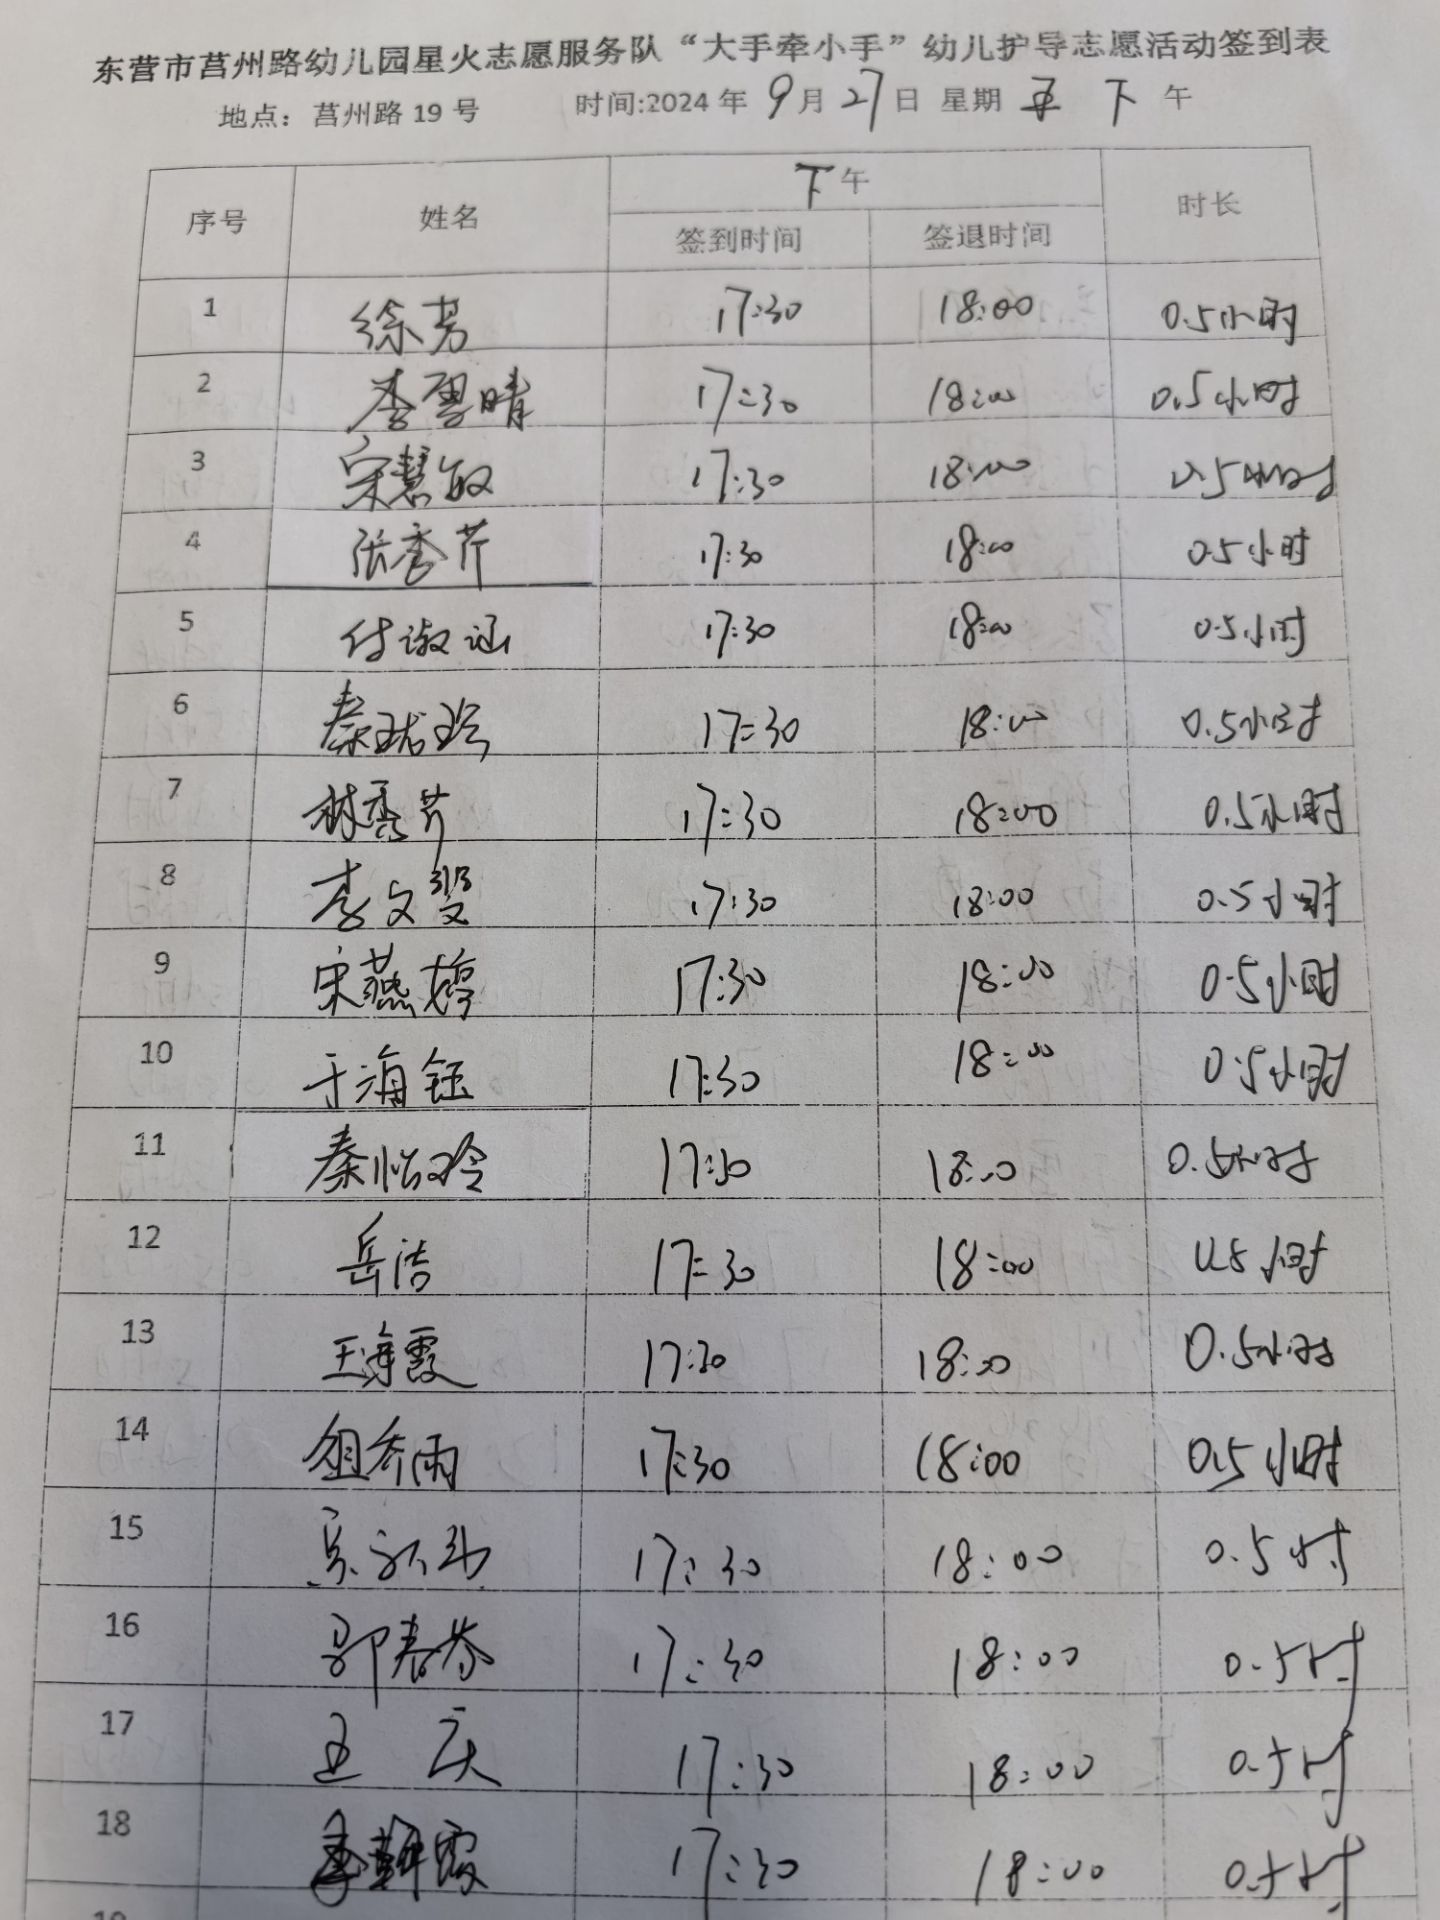 东营市莒州路幼儿园星火志愿服务队“大手牵小手”幼儿护导志愿活动签到表
地点：莒州路 19 号 时间:2024 年 9 月 27 日 星期 五 下 午
序号 姓名 下午 时长
签到时间 签退时间
1 徐芳 17:30 18:00 0.5小时
2 李雪晴 17:30 18:00 0.5小时
3 宋慧敏 17:30 18:00 0.5小时
4 张秀芹 17:30 18:00 0.5小时
5 付淑涵 17:30 18:00 0.5小时
6 秦珑玲 17:30 18:00 0.5小时
7 林秀芹 17:30 18:00 0.5小时
8 李文 17:30 18:00 0.5小时
9 宋燕婷 17:30 18:00 0.5小时
10 于海钰 17:30 18:00 0.5小时
11 秦怡玲 17:30 18:00 0.5小时
12 岳洁 17:30 18:00 0.5小时
13 王海霞 17:30 18:00 0.5小时
14 雨 17:30 18:00 0.5小时
15 17:30 18:00 0.5时
16 郭春芬 17:30 18:00 0.5时
17 王庆 17:30 18:00 0.5时
18 霞 17:30 18:00 0.5时
19